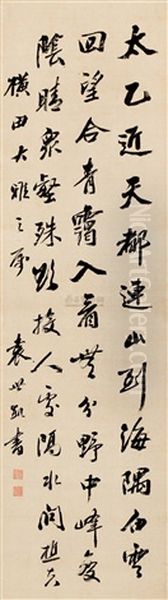 太乙近天都連山到海隅白雲
回望合青靄入看無分野中峰變
陰晴眾壑殊欲投人處隔水問樵夫
橫田大雅之屬 袁世凱書